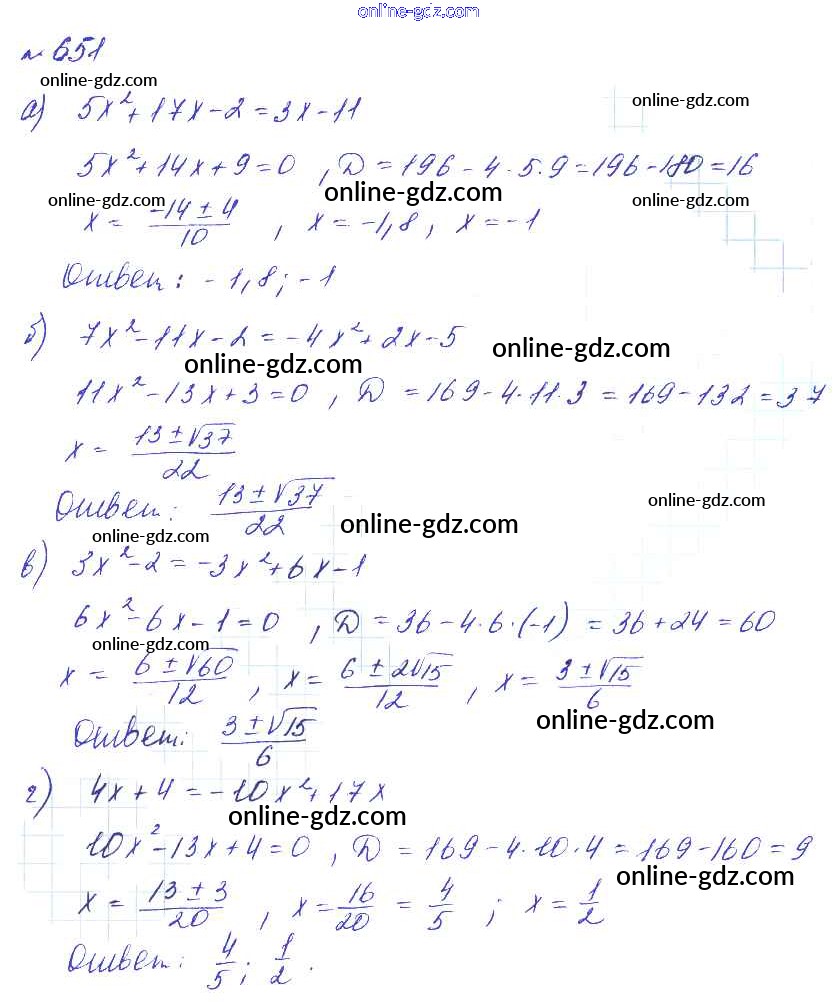 online-gdz.com
№ 651
online-gdz.com
online-gdz.com
а) 5x² + 17x - 2 = 3x - 11
5x² + 14x + 9 = 0 , D = 196 - 4 · 5 · 9 = 196 - 180 = 16
online-gdz.com online-gdz.com online-gdz.com
x = (-14 ± 4)/10 , x = -1,8 , x = -1
Ответ: -1,8 ; -1
б) 7x² - 11x - 2 = -4x² + 2x - 5
online-gdz.com online-gdz.com
11x² - 13x + 3 = 0 , D = 169 - 4 · 11 · 3 = 169 - 132 = 37
x = (13 ± √37)/22
Ответ: (13 ± √37)/22
online-gdz.com
online-gdz.com online-gdz.com
в) 3x² - 2 = -3x² + 6x - 1
6x² - 6x - 1 = 0 , D = 36 - 4 · 6 · (-1) = 36 + 24 = 60
online-gdz.com
x = (6 ± √60)/12 , x = (6 ± 2√15)/12 , x = (3 ± √15)/6
online-gdz.com
Ответ: (3 ± √15)/6
г) 4x + 4 = -10x² + 17x
online-gdz.com
10x² - 13x + 4 = 0 , D = 169 - 4 · 10 · 4 = 169 - 160 = 9
online-gdz.com
x = (13 ± 3)/20 , x = 16/20 = 4/5 ; x = 1/2
Ответ: 4/5 ; 1/2 .